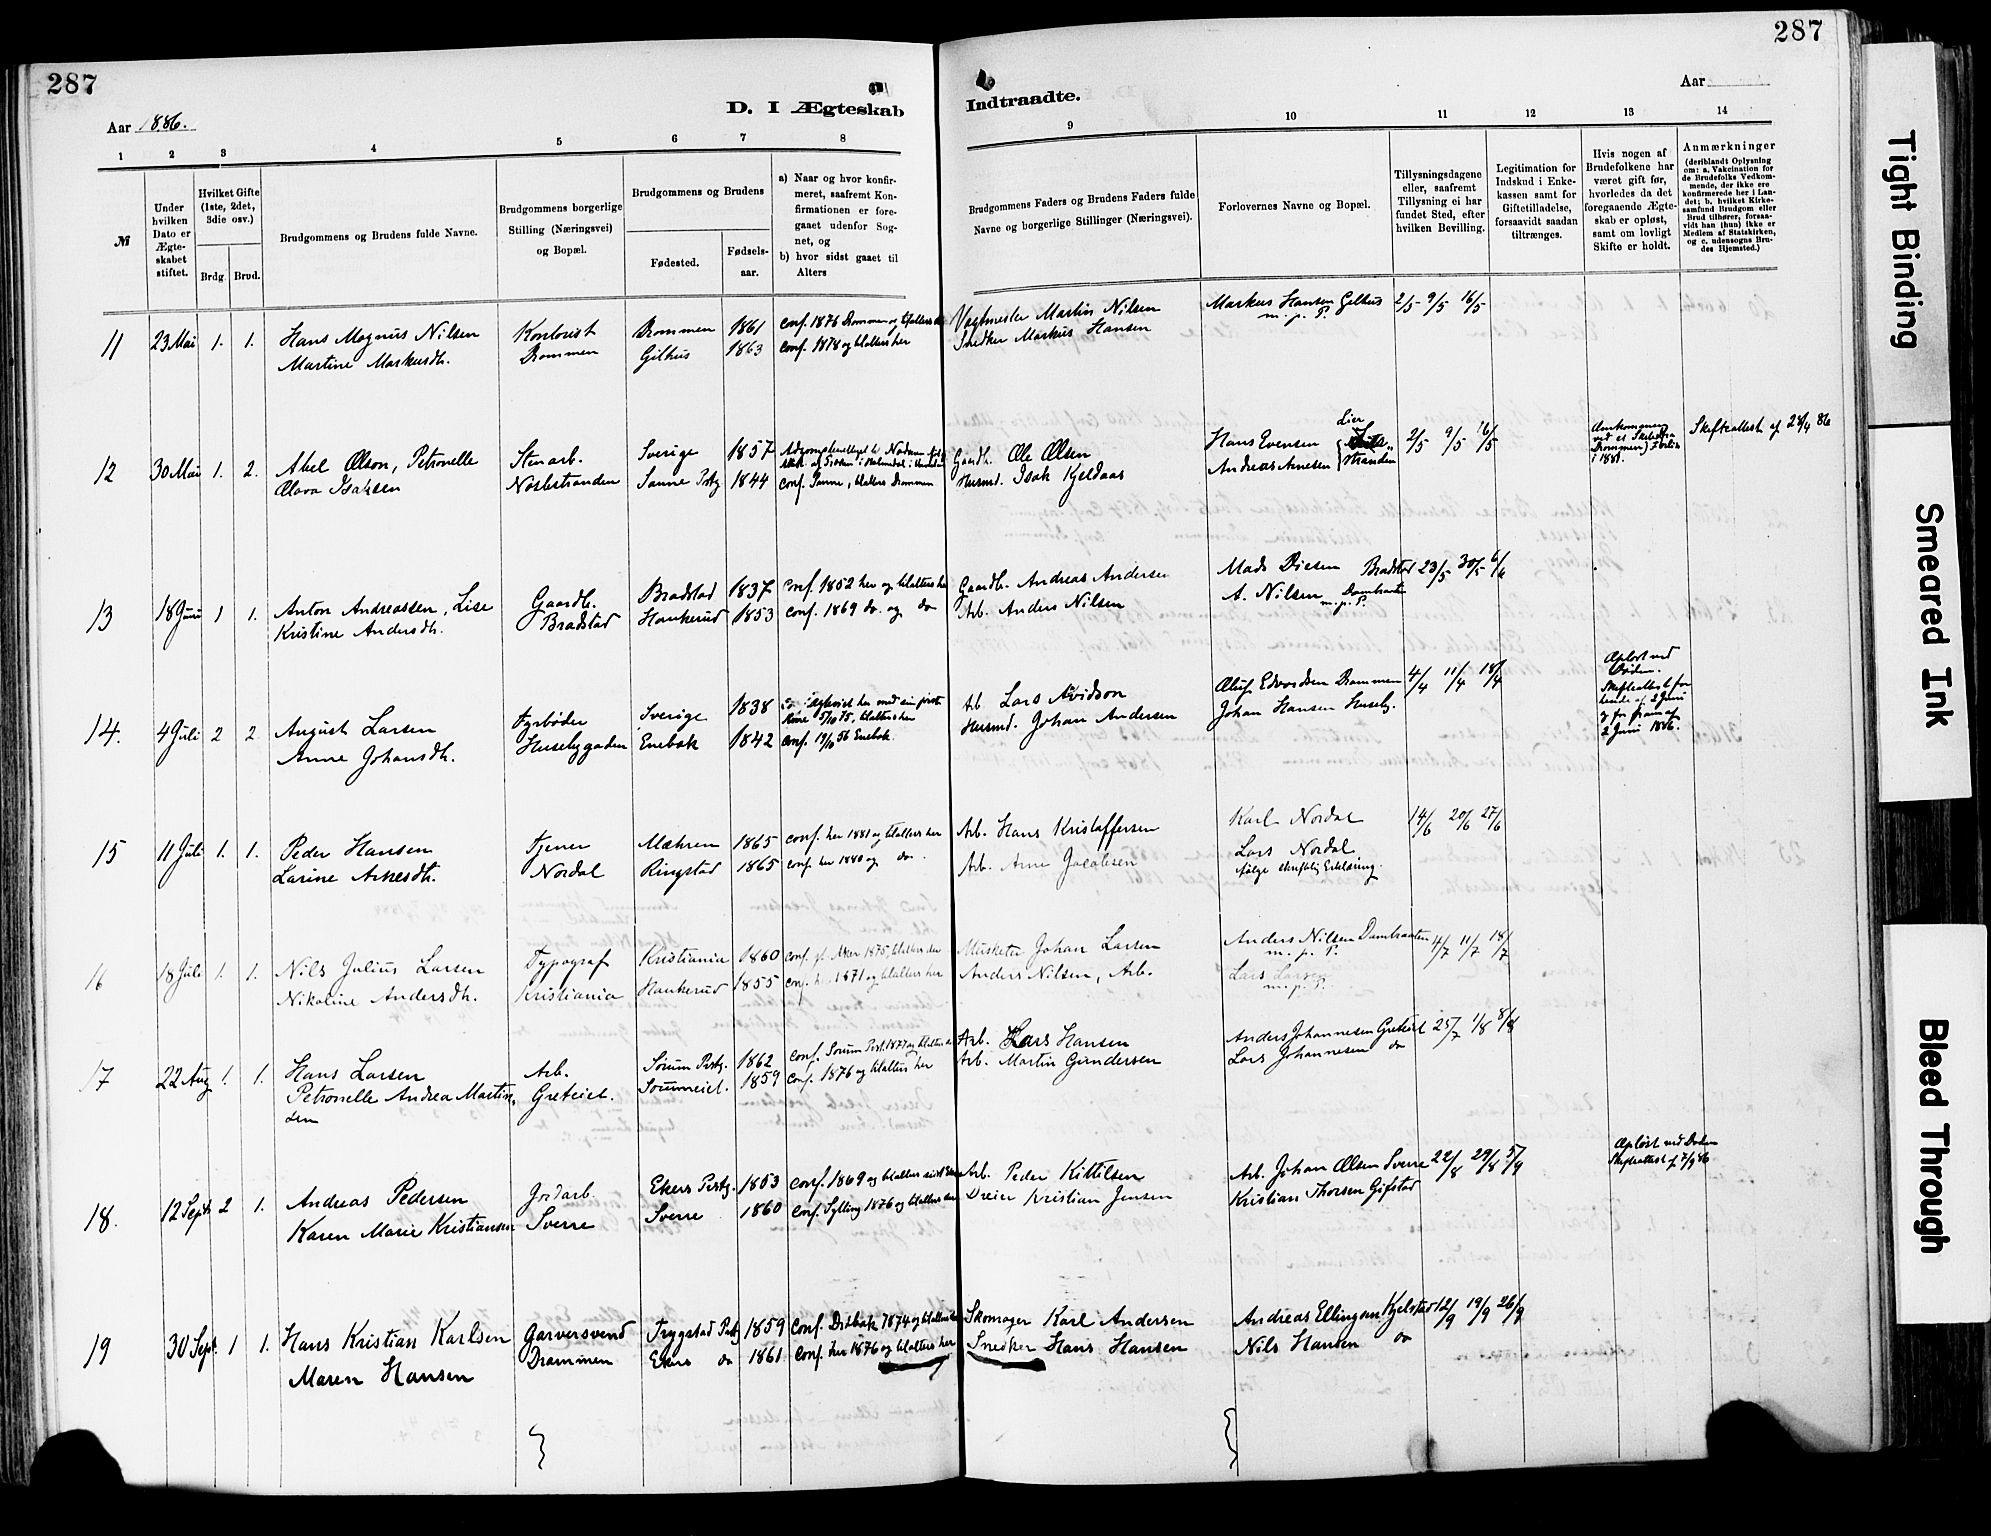 287
287
Aar 1886.
D. I Ægteskab
Indtraadte.
Aar
1 2 3 4 5 6 7 8
9 10 11 12 13 14
№
Under hvilken Dato er Ægteskabet stiftet.
Hvilket Gifte (1ste, 2det, 3die osv.)
Brdg. Brud.
Brudgommens og Brudens fulde Navne.
Brudgommens borgerlige Stilling (Næringsvei) og Bopæl.
Brudgommens og Brudens
Fødested.
Fødsels-aar.
a) Naar og hvor konfirmeret, saafremt Konfirmationen er foregaaet udenfor Sognet, og
b) hvor sidst gaaet til Alters
Brudgommens Faders og Brudens Faders fulde Navne og borgerlige Stillinger (Næringsvei).
Forlovernes Navne og Bopæl.
Tillysningsdagene eller, saafremt Tillysning ei har fundet Sted, efter hvilken Bevilling.
Legitimation for Indskud i Enkekassen samt for Giftetilladelse, forsaavidt saadan tiltrænges.
Hvis nogen af Brudefolkene har været gift før, hvorledes da det foregaaende Ægteskab er opløst, samt om lovligt Skifte er holdt.
Anmærkninger (deriblandt Oplysning om: a. Vakcination for de Brudefolks Vedkommende, der ikke ere konfirmerede her i Landet; b. hvilket Kirkesamfund Brudgom eller Brud tilhører, forsaavidt han (hun) ikke er Medlem af Statskirken, og c. udensogns Brudes Hjemsted.)
11 23 Mai 1. 1. Hans Magnus Nilsen Kontorist Drammen 1861 conf. 1876 Drammen og tilalters Vagtmester Martin Nilsen Markus Hansen Gilhus 2/5 9/5 16/5
Martine Markusdh. Drammen Gilhus 1863 conf. 1878 og tilalters her Snedker Markus Hansen m. p. P.
12 30 Mai 1. 2. Abel Olson, Petronelle Stenarb. Sverige 1857 Gaardb. Ole Olsen Hans Evensen Lier 2/5 9/5 16/5 Skifteattest af 29/4 86
Olava Isaksen Nøstestranden Sanne Pstg 1844 conf. Sanne, tilalters Drammen Husmd. Isak Kjeldaas Andreas Arnesen stranden
13 18 Juni 1 1. Anton Andreassen, Lise Gaardb. Bradstad 1837 conf. 1852 her og tilalters her Gaardb. Andreas Andersen Mads Diesen Bradstad 23/5 30/5 6/6
Kristine Andersdh. Bradstad Hankerud 1853 conf. 1869 do. og do Arb. Anders Nilsen A. Nilsen Dambraaten m. p. P.
14. 4 Juli 2 2. August Larsen Fyrbøder Sverige 1838 5/10 75, tilalters her Ab Lars Arvidson Oluf Edvardsen Drammen 4/4 11/4 18/4 Opløst ved Døden. Skifteattest for hende af 2 Juni og for ham af 2 Juni 1886.
Anne Johansdh. Husebygaden Enebak 1842 conf. 19/10 56 Enebak. Husmd. Johan Andersen Johan Hansen Huseby.
15 11 Juli 1. 1. Peder Hansen Tjener Mæhren 1865 conf. her 1881 og tilalters her Arb. Hans Kristaffersen Karl Nordal 14/6 20/6 27/6
Larine Arnesdh. Nordal Ringstad 1865 conf. her 1880 og do. Arb. Arne Jacobsen Lars Nordal
ifølge skriftlig Erklæring.
16 18 Juli 1. 1. Nils Julius Larsen Typograf Kristiania 1860 conf. gl. Aker 1875, tilalters der Musketer Johan Larsen Anders Nilsen Dambraaten 4/7 11/7 18/7
m. p. P.
Nikoline Andersdh. Kristiania Hankerud 1855 conf. her 1871 og tilalters her Anders Nilsen, Arb. Lars Larsen
m. p. P.
17 22 Aug 1. 1. Hans Larsen Arb. Sørum Pstg. 1862 conf. Sørum Pst. 1877 og tilalters Arb. Lars Hansen Anders Johannesen Greteiet 25/7 1/8 8/8
Petronelle Andrea Martin- Greteiet. 1859 conf. 1876 og tilalters her Arb. Martin Gundersen Lars Johannesen do
sen
18. 12 Sept. 2 1. Andreas Pedersen Jordarb. Ekers Pstg. 1853 conf. 1869 og tilalters sidst Arb. Peder Kittilsen Arb. Johan Olsen Sverre 22/8 29/8 5/9 Opløst ved Døden Skifteattest af 7/9 86
Karen Marie Kristiansen Sverre Sverre 1860 conf. Sylling 1876 og tilalters der Dreier Kristian Jensen Kristian Thorsen Gifstad
19 30 Sept. 1 1. Hans Kristian Karlsen Garversvend Trygstad Pstg 1859 conf. Drøbak 1874 og tilalters Skomager Karl Andersen Andreas Ellingsen Kjelstad 12/9 19/9 26/9
Maren Hansen Drammen Ekers do 1861 conf. her 1876 og tilalters her Snedker Hans Hansen Nils Hansen do
Tight Binding
Smeared Ink
Bleed Through